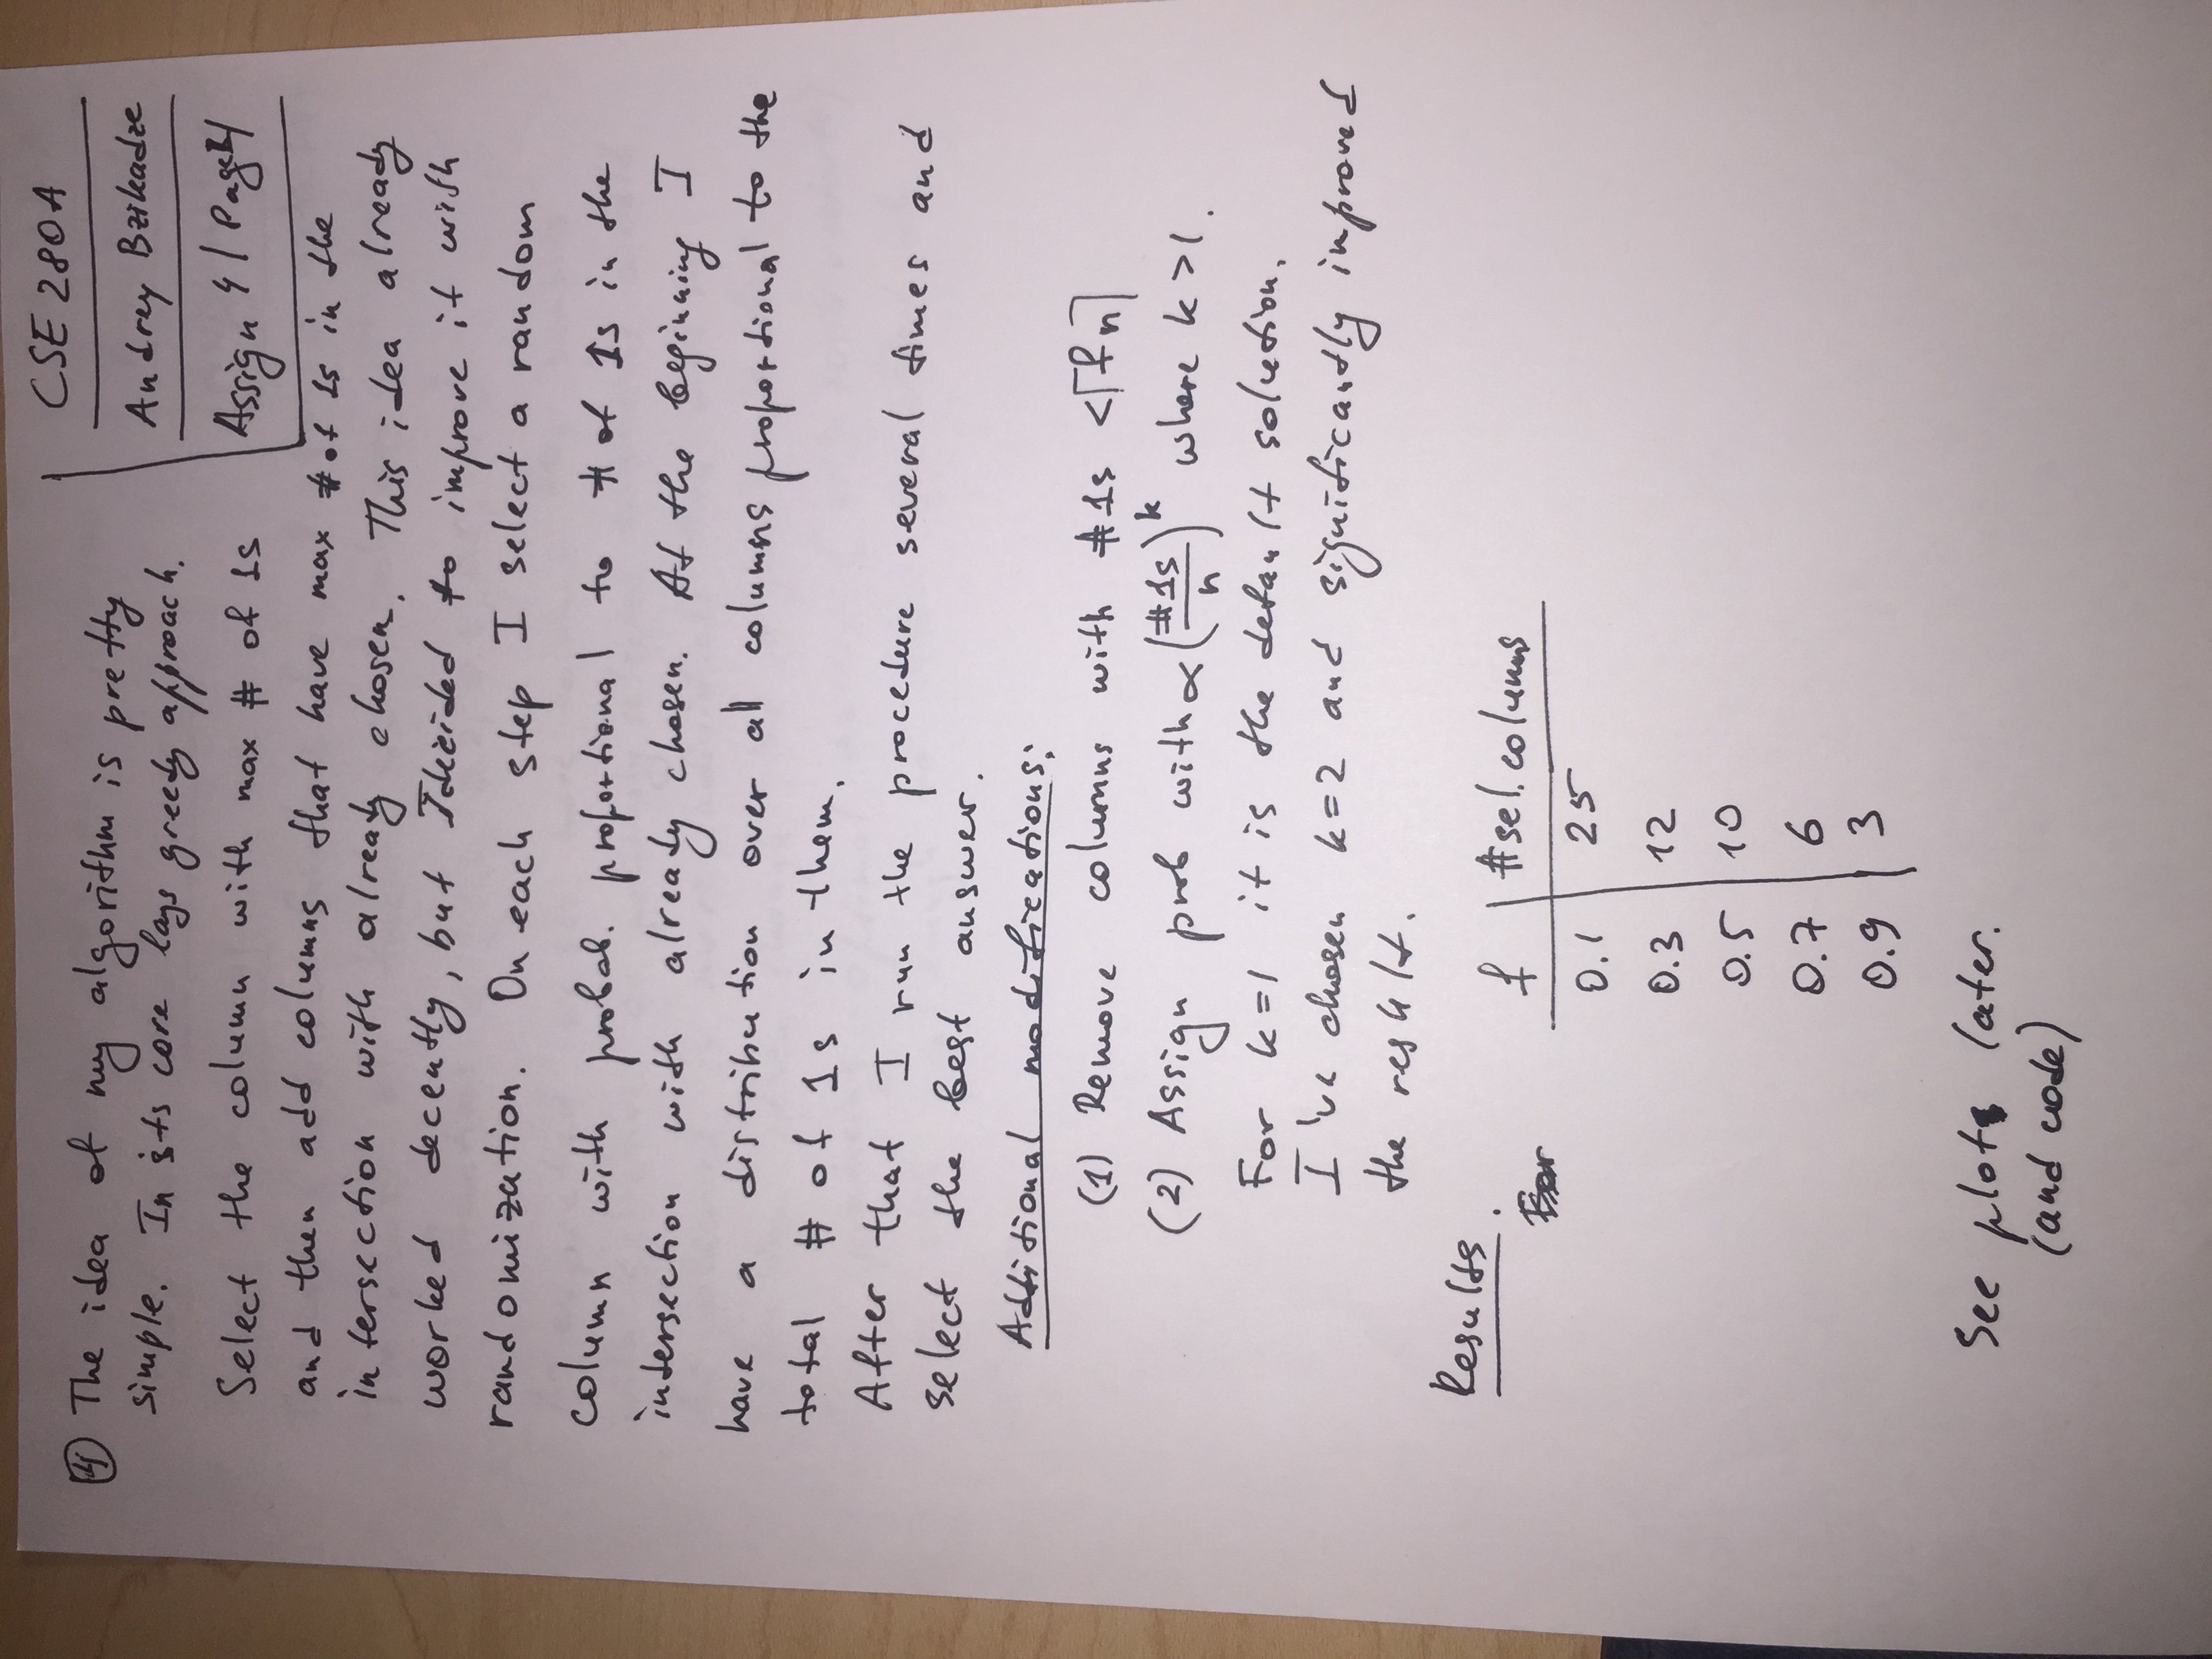 CSE 280A
Andrey Bzikadze
Assign 4 / Page 4
④ The idea of my algorithm is pretty
simple. In its core lays greedy approach.
Select the column with max # of 1s
and then add columns that have max # of 1s in the
intersection with already chosen. This idea already
worked decently, but I decided to improve it with
randomization. On each step I select a random
column with probab. proportional to # of 1s in the
intersection with already chosen. At the beginning I
have a distribution over all columns proportional to the
total # of 1s in them.
After that I run the procedure several times and
select the best answer.
Additional modifications:
(1) Remove columns with #1s < ⌈fn⌉
(2) Assign prob with ∝ (#1s/n)^k where k > 1.
For k=1 it is the default solution.
I've chosen k=2 and significantly improved
the result.
Results.
f | #sel. columns
0.1 | 25
0.3 | 12
0.5 | 10
0.7 | 6
0.9 | 3
See plots later.
(and code)